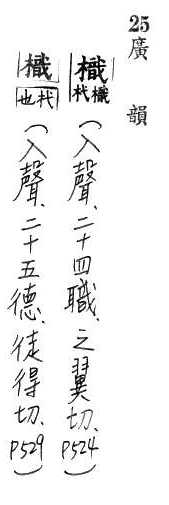 25廣韻
樴 樴杙(入聲、二十四職、之翼切、P524)
樴 杙也(入聲、二十五德、徒得切、P529)